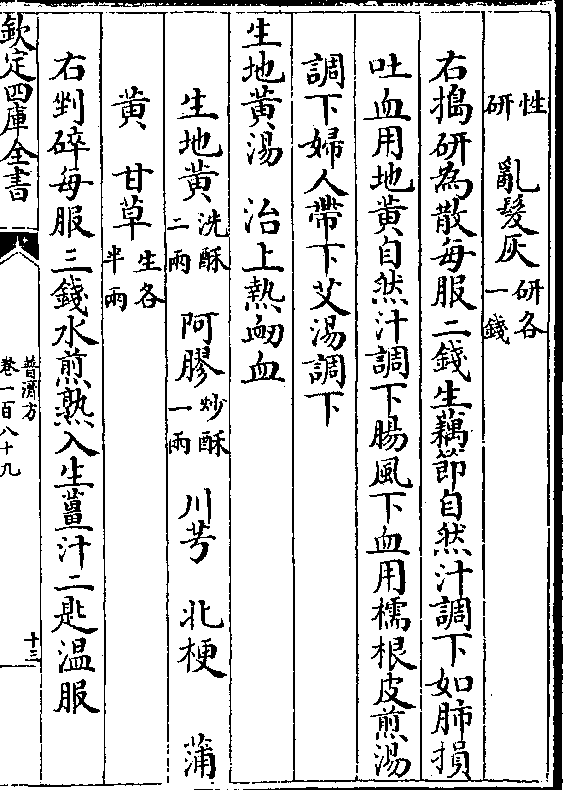 性研　亂髮灰研各一錢
右搗研為散每服二錢生藕節自然汁調下如肺損
吐血用地黃自然汁調下腸風下血用樗根皮煎湯
調下婦人帶下艾湯調下
生地黃湯　治上熱衂血
生地黃洗酥二兩　阿膠炒酥一兩　川芎　北梗　蒲
黃　甘草生各半兩
右剉碎每服三錢水煎熟入生薑汁二匙温服
欽定四庫全書
普濟方
卷一百八十九
十三